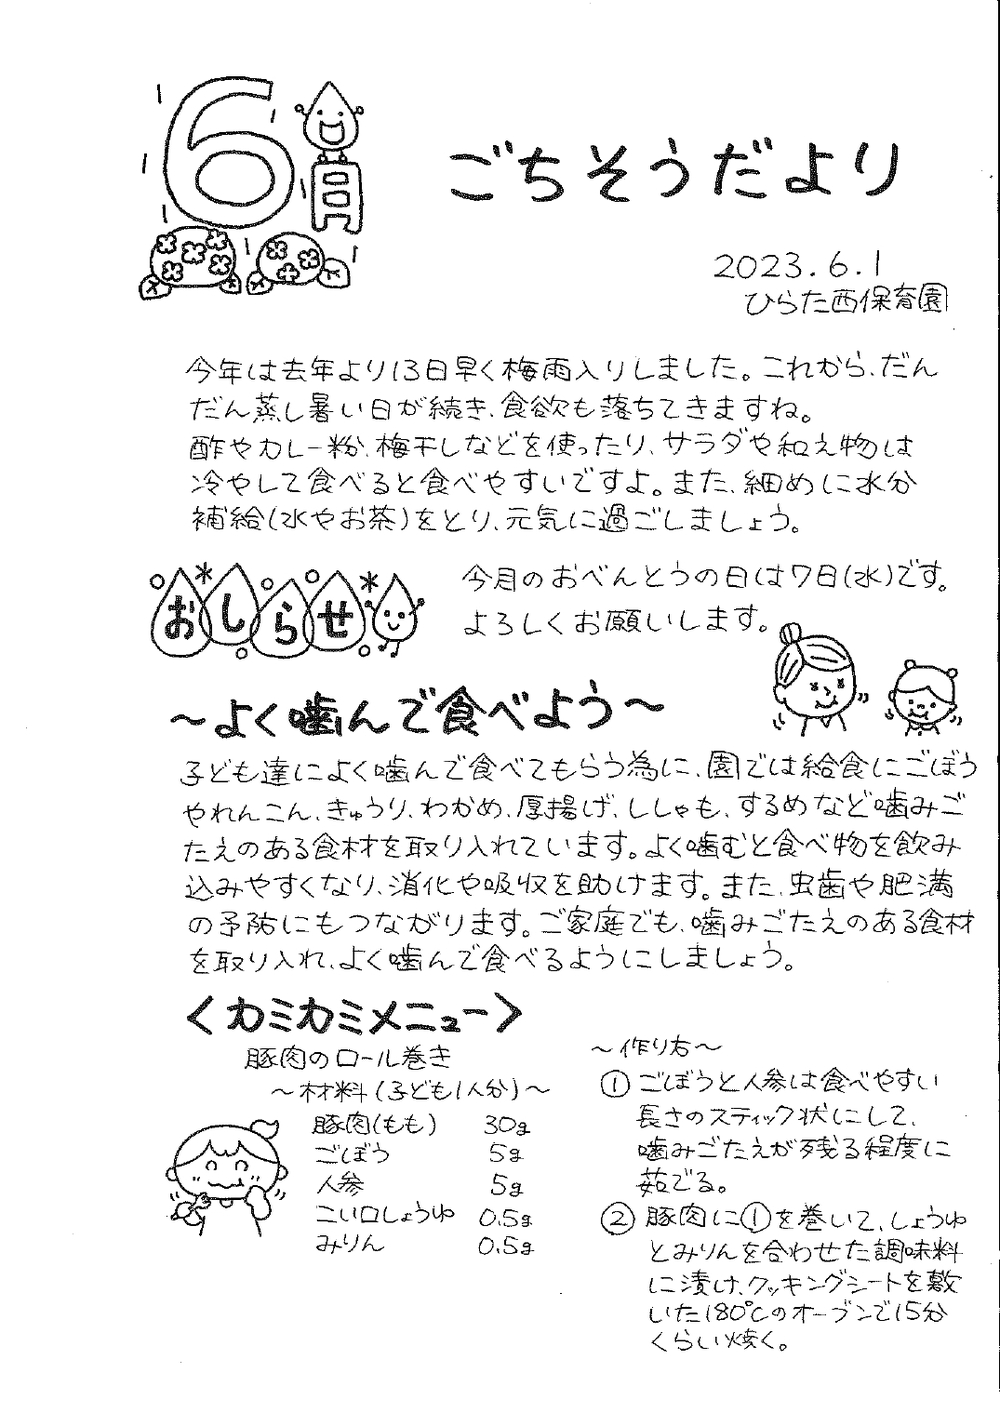 6月
ごちそうだより
2023.6.1
ひらた西保育園
今年は去年より13日早く梅雨入りしました。これから、だん
だん蒸し暑い日が続き、食欲も落ちてきますね。
酢やカレー粉、梅干しなどを使ったり、サラダや和え物は
冷やして食べると食べやすいですよ。また、細めに水分
補給(水やお茶)をとり、元気に過ごしましょう。
おしらせ
今月のおべんとうの日は7日(水)です。
よろしくお願いします。
～よく噛んで食べよう～
子ども達によく噛んで食べてもらう為に、園では給食にごぼう
やれんこん、きゅうり、わかめ、厚揚げ、ししゃも、するめなど噛みご
たえのある食材を取り入れています。よく噛むと食べ物を飲み
込みやすくなり、消化や吸収を助けます。また、虫歯や肥満
の予防にもつながります。ご家庭でも、噛みごたえのある食材
を取り入れ、よく噛んで食べるようにしましょう。
<カミカミメニュー>
豚肉のロール巻き
～材料(子ども1人分)～
豚肉(もも) 30g
ごぼう 5g
人参 5g
こい口しょうゆ 0.5g
みりん 0.5g
～作り方～
① ごぼうと人参は食べやすい
長さのスティック状にして、
噛みごたえが残る程度に
茹でる。
② 豚肉に①を巻いて、しょうゆ
とみりんを合わせた調味料
に漬け、クッキングシートを敷
いた180℃のオーブンで15分
くらい焼く。